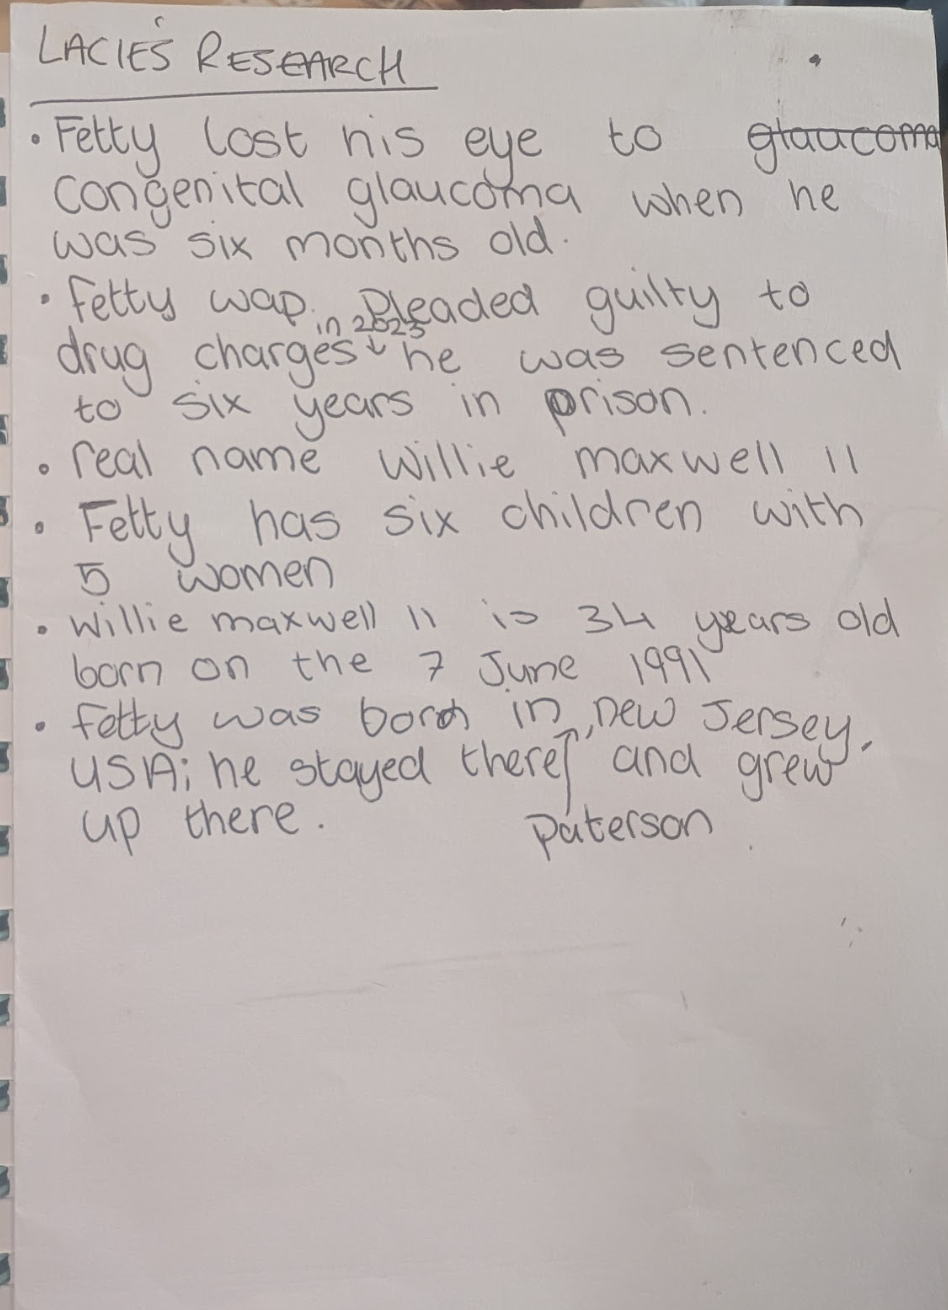 LACIE'S RESEARCH
• Fetty lost his eye to glaucoma
congenital glaucoma when he
was six months old.
• Fetty wap. Pleaded guilty to
in 2023
drug charges he was sentenced
to six years in prison.
• real name Willie maxwell II
• Fetty has six children with
5 women
• Willie maxwell II is 34 years old
born on the 7 June 1991
• fetty was born in, new Jersey,
USA; he stayed there and grew
up there.
paterson